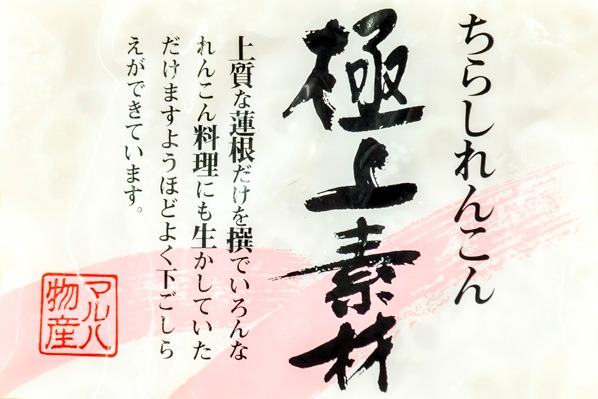 ちらしれんこん
極上素材
上質な蓮根だけを撰でいろんな
れんこん料理にも生かしていた
だけますようほどよく下ごしら
えができています。
マルハ
物産